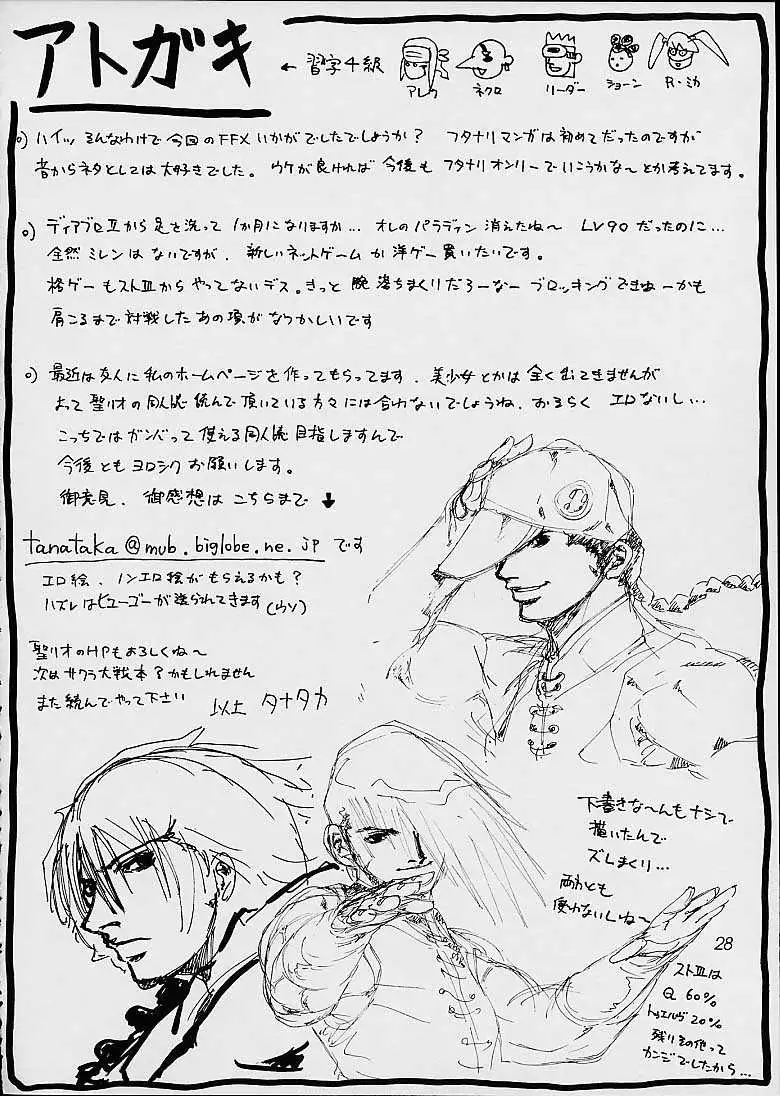 アトガキ
← 習字4級
アレク
ネクロ
リーダー
ショーン
R・ミカ
ハイッ そんなわけで今回のFFXいかがでしたでしょうか? フタナリマンガは初めてだったのですが
昔からネタとしては大好きでした。 ウケが良ければ今後も フタナリオンリーでいこうかな〜とか考えてます。
ディアブロⅡから足を洗って 1か月になりますか… オレのパラディン 消えたね〜 LV90だったのに…
全然ミレンはないですが、新しいネットゲームか洋ゲー買いたいです。
格ゲーもストⅢからやってないデス。きっと腕落ちまくりだろーなー ブロッキングできねーかも
肩こるまで対戦したあの頃がなつかしいです
最近は友人に私のホームページを作ってもらってます、美少女とかは全く出てきませんが
よって聖リオの同人誌読んで頂いている方々には合わないでしょうね、おそらく エロないし…
こっちではガンバって使える同人誌目指しますんで
今後ともヨロシクお願いします。
御意見、御感想はこちらまで ↓
tanataka@mub.biglobe.ne.jp です
エロ絵、ノンエロ絵がもらえるかも?
ハズレはヒューゴーが送られてきます(ウソ)
聖リオのHPもよろしくね〜
次はサクラ大戦本?かもしれません
また読んでやって下さい
以上 タナタカ
下書きな〜んもナシで
描いたんで
ズレまくり…
両わとも
使わないしね〜
28
ストⅢは
Q 60%
トゥエルヴ 20%
残りその他って
カンジでしたから…